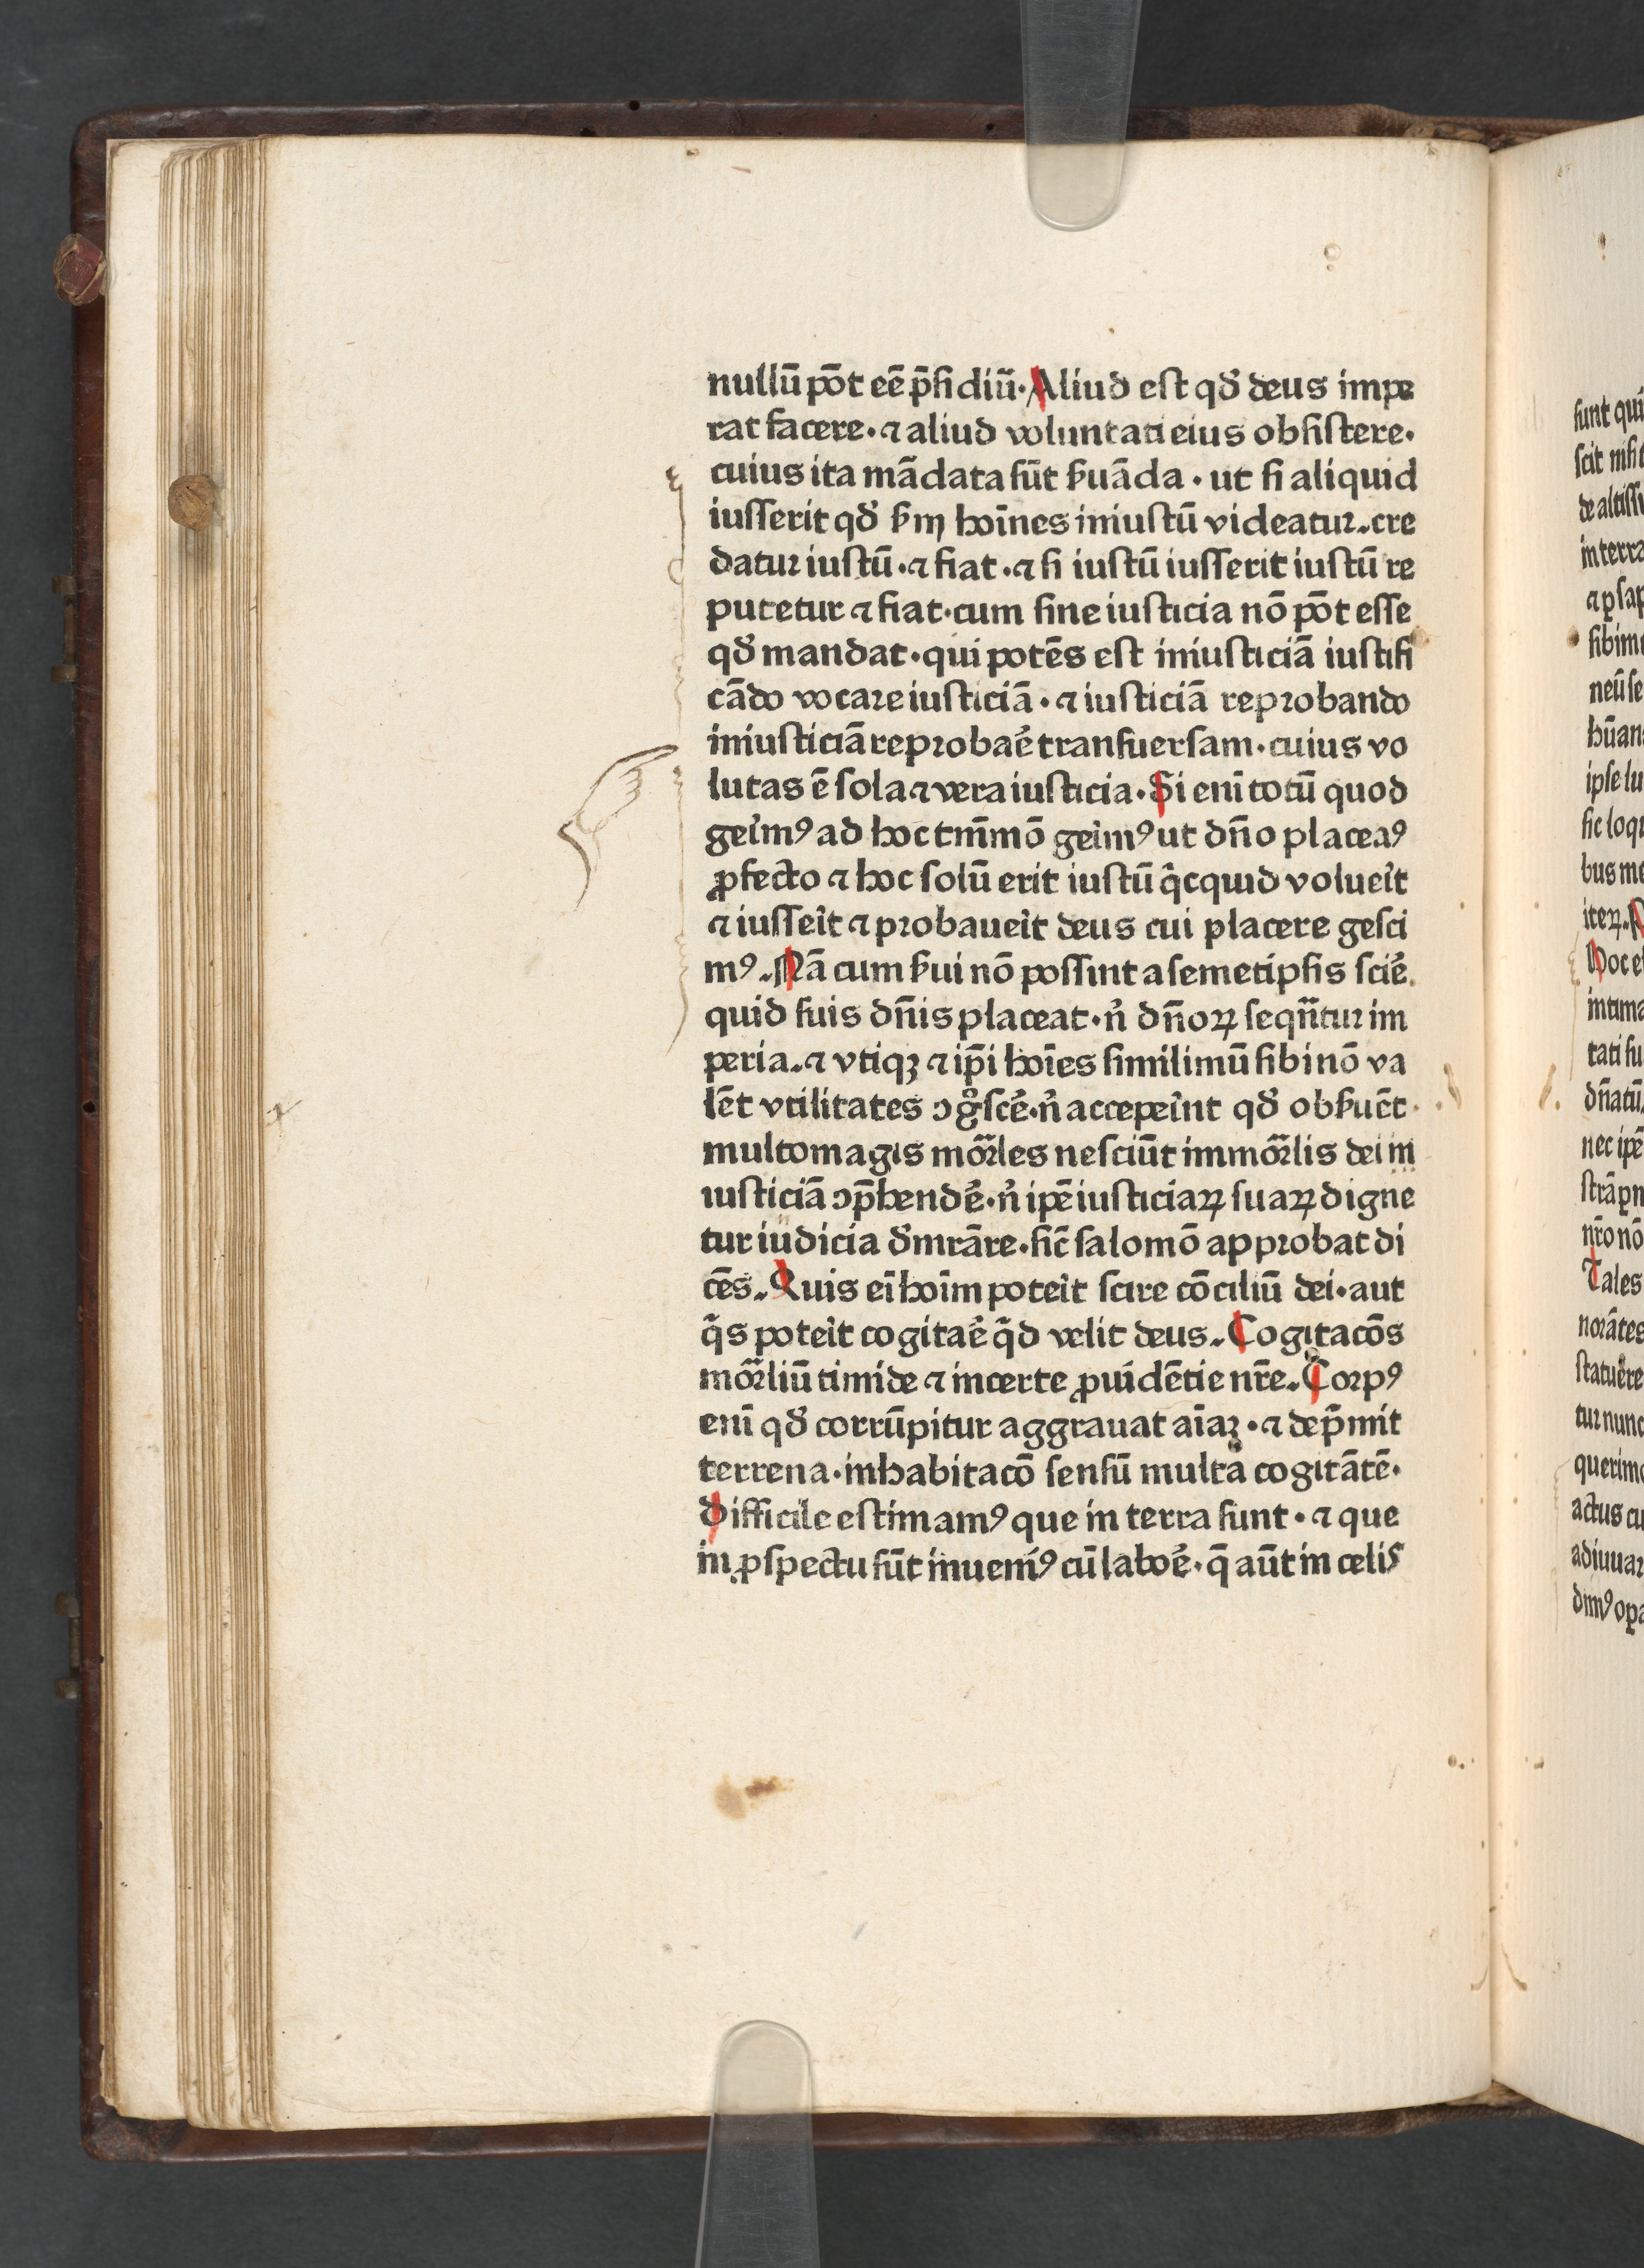 nullū pōt eē p̄ſidiū·Aliud eſt qđ deus impe
rat facere·⁊ aliud voluntati eius obſiſtere·
cuius ita mādata ſūt ẜuāda · ut ſi aliquid
iuſſerit qđ ẜm hoīnes iniuſtū videatur.cre
datur iuſtū·⁊ fiat·⁊ ſi iuſtū iuſſerit iuſtū re
putetur ⁊ fiat·cum ſine iuſticia nō pōt eſſe
qđ mandat·qui potēs eſt iniuſticiā iuſtifi
cādo vocare iuſticiā·⁊ iuſticiā reprobando
iniuſticiā reprobaē tranſuerſam·cuius vo
lutas ē ſola ⁊ vera iuſticia·Si enī totū quod
geīmꝰ ad hoc tm̄mō geīmꝰ ut dn̄o placeaꝰ
ꝓfecto ⁊ hoc ſolū erit iuſtū q̄cquid volueīt
⁊ iuſſeīt ⁊ probaueīt deus cui placere geſci
mꝰ.Nā cum ẜui nō poſſint a ſemetipſis ſciē
quid ſuis dn̄is placeat·n̄ dn̄oꝝ ſeqn̄tur im
peria.⁊ vtiqꝫ ⁊ ip̄i hoīes ſimilimū ſibi nō va
lēt vtilitates ↄgͦſcē·n̄ accepeīnt qđ obẜuēt·
multomagis mōrles neſciūt immōrlis dei in
iuſticiā ↄp̄hendē·n̄ ip̄e iuſticiaꝝ ſuaꝝ digne
tur iudicia đmrāre·ſic̄ ſalomō approbat di
cēs.Quis eī hoīm poteīt ſcire cōciliū dei·aut
q̄s poteīt cogitaē q̄d velit deus.Cogitacōs
mōrliū timide ⁊ incerte ꝓuidētie nr̄e.Corpꝰ
enī qđ corrūpitur aggrauat aīaꝫ·⁊ dep̄mit
terrena·inhabitacō ſenſū multā cogitātē·
Difficile eſtimamꝰ que in terra ſunt·⁊ que
in ꝓſpectu ſūt inuenīꝰ cū laboē·q̄ aūt in celis